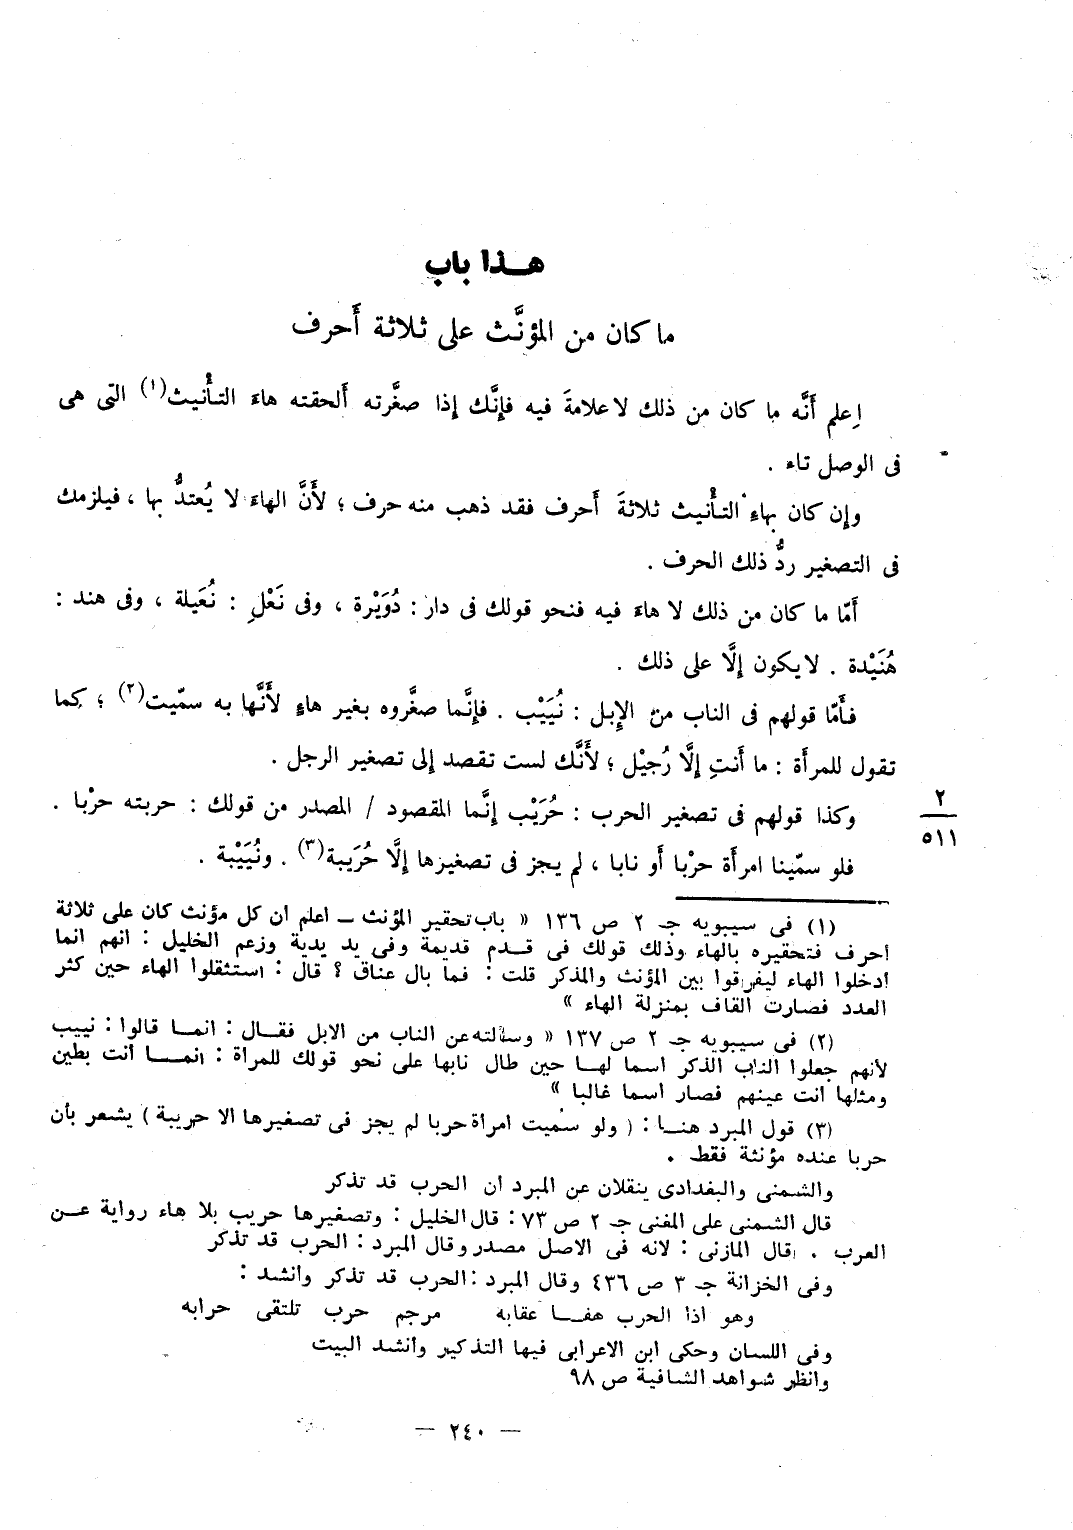 هـــذا باب
ما كان من المؤنَّث على ثلاثة أَحرف
اِعلم أَنَّه ما كان من ذلك لا علامةَ فيه فإِنَّك إِذا صغَّرته أَلحقته هاءَ التأْنيث(١) التى هى
فى الوصل تاء .
وإِن كان بهاءِ التأْنيث ثلاثةَ أَحرف فقد ذهب منه حرف ؛ لأَنَّ الهاءَ لا يُعتدُّ بها ، فيلزمك
فى التصغير ردُّ ذلك الحرف .
أَمّا ما كان من ذلك لا هاءَ فيه فنحو قولك فى دار : دُوَيْرة ، وفى نَعْلٍ : نُعَيلة ، وفى هند :
هُنَيْدة . لا يكون إِلَّا على ذلك .
فأَمّا قولهم فى الناب من الإِبل : نُيَيْب . فإِنَّما صغَّروه بغير هاءٍ لأَنَّها به سمّيت(٢) ؛ كما
تقول للمرأَة : ما أَنتِ إِلَّا رُجيْل ؛ لأَنَّك لست تقصد إِلى تصغير الرجل .
وكذا قولهم فى تصغير الحرب : حُرَيْب إِنَّما المقصود / المصدر من قولك : حربته حرْبا .
٢
٥١١
فلو سمّينا امرأَة حرْبا أَو نابا ، لم يجز فى تصغيرها إِلَّا حُرَيبة(٣) . ونُيَيْبة .
(١) فى سيبويه جـ ٢ ص ١٣٦ « باب تحقير المؤنث ــ اعلم أن كل مؤنث كان على ثلاثة
أحرف فتحقيره بالهاء وذلك قولك فى قــدم قديمة وفى يد يدية وزعم الخليل : أنهم انما
أدخلوا الهاء ليفرقوا بين المؤنث والمذكر قلت : فما بال عناق ؟ قال : استثقلوا الهاء حين كثر
العدد فصارت القاف بمنزلة الهاء »
(٢) فى سيبويه جـ ٢ ص ١٣٧ « وسألته عن الناب من الابل فقــال : انمــا قالوا : نييب
لأنهم جعلوا الناب الذكر اسما لهــا حين طال نابها على نحو قولك للمرأة : انمــا أنت بطين
ومثلها أنت عينهم فصار اسما غالبا »
(٣) قول المبرد هنــا : ( ولو سُميت امرأة حربا لم يجز فى تصغيرها الا حريبة ) يشعر بأن
حربا عنده مؤنثة فقط .
والشمنى والبغدادى ينقلان عن المبرد أن الحرب قد تذكر
قال الشمنى على المغنى جـ ٢ ص ٧٣ : قال الخليل : وتصغيرها حريب بلا هاء رواية عــن
العرب . قال المازنى : لانه فى الاصل مصدر وقال المبرد : الحرب قد تذكر
وفى الخزانة جـ ٣ ص ٤٣٦ وقال المبرد : الحرب قد تذكر وأنشد :
وهو اذا الحرب هفــا عقابه مرجم حرب تلتقى حرابه
وفى اللسان وحكى ابن الاعرابى فيها التذكير وأنشد البيت
وانظر شواهد الشافية ص ٩٨
— ٢٤٠ —